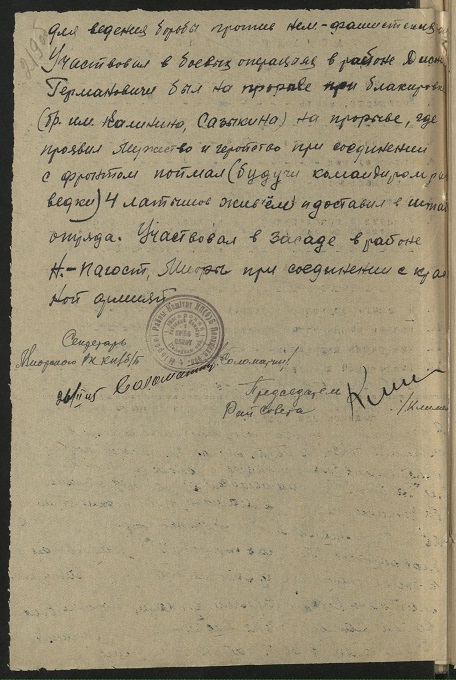 219об
для ведения борьбы против нем.-фашистских
Участвовал в боевых операциях в районе Дисны
Германовичи был на прорыве при блакировке
(бр. им. Калинина, Сазыкина) на прорыве, где
проявил мужество и геройство при соединении
с фронтом поймал (будучи командиром раз
ведки) 4 латышов живьём и доставил в штаб
отряда. Участвовал в засаде в районе
Н.-Пагост, Миоры при соединении с крас
ной армией
Секретарь
Миорского РК КП(б)Б
26/II 45 Соломатин /Соломатин/
Председатель
Рай совета
/Климе